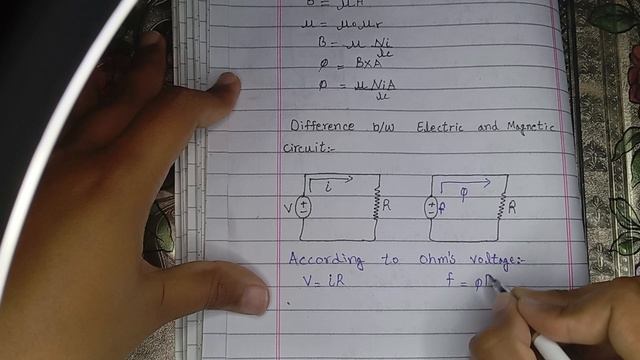 B = μH
μ = μ₀μr
B = μ Ni
lc
φ = B×A
φ = μ NiA
lc
Difference b/w Electric and Magnetic
Circuit:-
i
φ
V
R
f
R
According to Ohm's voltage:-
V = iR
f = φ